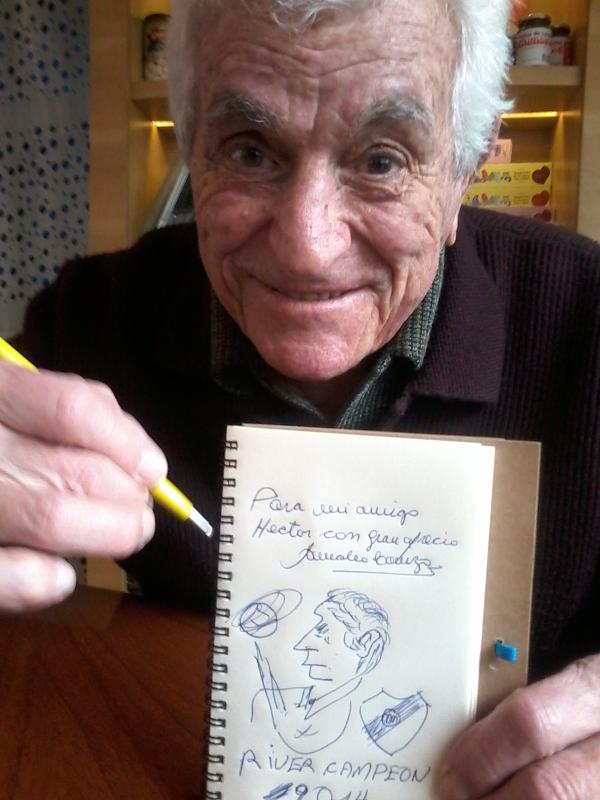 Para mi amigo
Hector con gran aprecio
Amadeo Carrizo
RiVER CAMPEON
2014